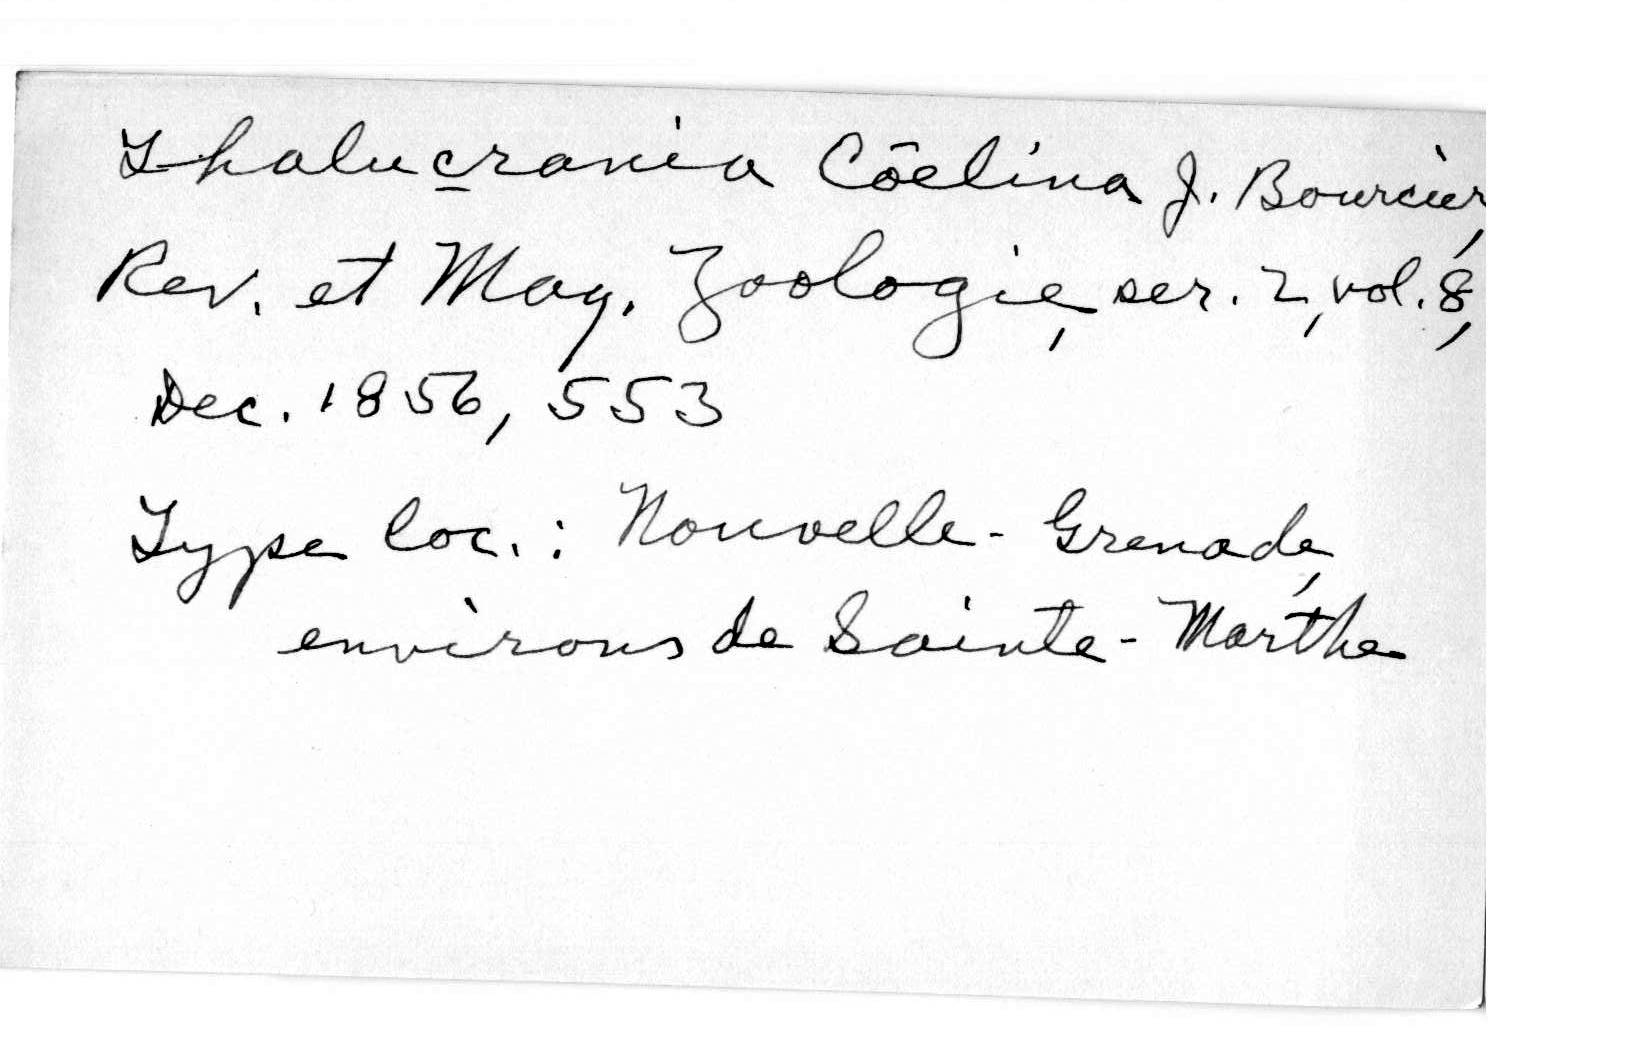 Thalucrania Cōelina J. Bourcier,
Rev. et Mag. Zoologie, ser. 2, vol. 8,
Dec. 1856, 553
Type loc.: Nouvelle-Grenade,
environs de Sainte-Marthe